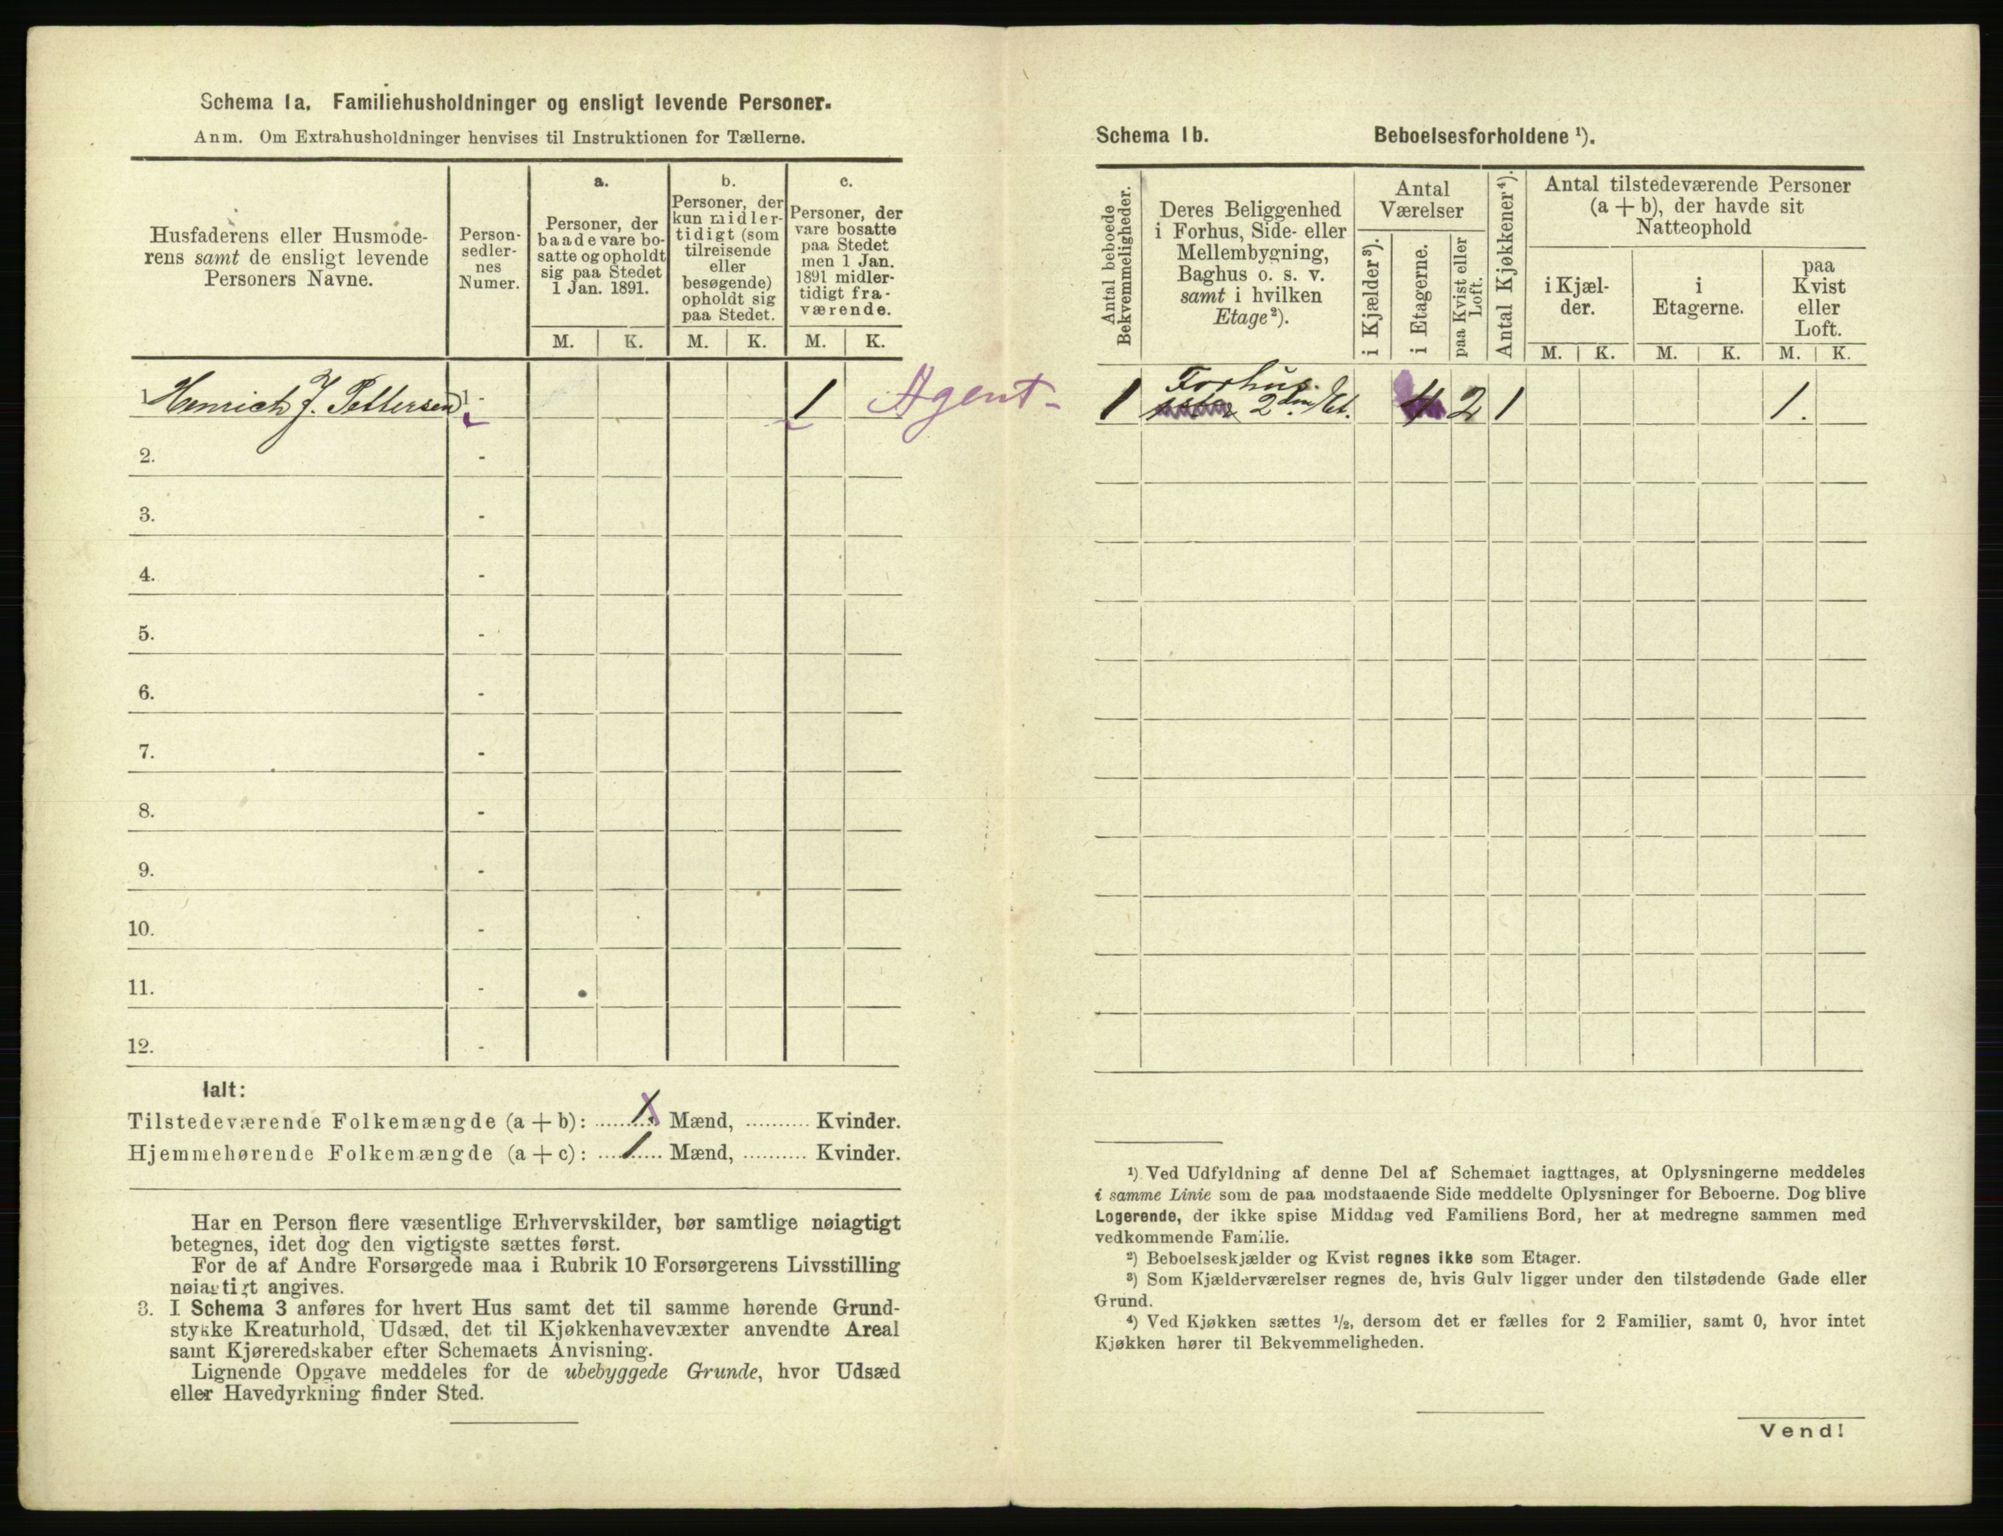 Schema 1a. Familiehusholdninger og ensligt levende Personer.
Anm. Om Extrahusholdninger henvises til Instruktionen for Tællerne.
Husfaderens eller Husmode-
rens samt de ensligt levende
Personers Navne.
Person-
sedler-
nes
Numer.
a.
Personer, der
baade vare bo-
satte og opholdt
sig paa Stedet
1 Jan. 1891.
b.
Personer, der
kun midler-
tidigt (som
tilreisende
eller
besøgende)
opholdt sig
paa Stedet.
c.
Personer, der
vare bosatte
paa Stedet
men 1 Jan.
1891 midler-
tidigt fra-
værende.
M. K. M. K. M. K.
1 Henrich J. Pettersen 1- 1 Agent-
2. -
3. -
4. -
5. -
6. -
7. -
8. -
9. -
10. -
11. -
12. -
Ialt:
Tilstedeværende Folkemængde (a + b): 1. Mænd, .......... Kvinder.
Hjemmehørende Folkemængde (a + c): 1 Mænd, .......... Kvinder.
Har en Person flere væsentlige Erhvervskilder, bør samtlige nøiagtigt
betegnes, idet dog den vigtigste sættes først.
For de af Andre Forsørgede maa i Rubrik 10 Forsørgerens Livsstilling
nøiagtigt angives.
3. I Schema 3 anføres for hvert Hus samt det til samme hørende Grund-
stykke Kreaturhold, Udsæd, det til Kjøkkenhavevæxter anvendte Areal
samt Kjøreredskaber efter Schemaets Anvisning.
Lignende Opgave meddeles for de ubebyggede Grunde, hvor Udsæd
eller Havedyrkning finder Sted.
Schema 1b. Beboelsesforholdene ¹).
Antal beboede
Bekvemmeligheder.
Deres Beliggenhed
i Forhus, Side- eller
Mellembygning,
Baghus o. s. v.
samt i hvilken
Etage²).
Antal
Værelser
i Kjælder³).
i Etagerne.
paa Kvist eller
Loft.
Antal Kjøkkener⁴).
Antal tilstedeværende Personer
(a + b), der havde sit
Natteophold
i Kjæl-
der.
i
Etagerne.
paa
Kvist
eller
Loft.
M. K. M. K. M. K.
Forhus.
1 2den Et. 4 2 1 1.
¹) Ved Udfyldning af denne Del af Schemaet iagttages, at Oplysningerne meddeles
i samme Linie som de paa modstaaende Side meddelte Oplysninger for Beboerne. Dog blive
Logerende, der ikke spise Middag ved Familiens Bord, her at medregne sammen med
vedkommende Familie.
²) Beboelseskjælder og Kvist regnes ikke som Etager.
³) Som Kjælderværelser regnes de, hvis Gulv ligger under den tilstødende Gade eller
Grund.
⁴) Ved Kjøkken sættes ½, dersom det er fælles for 2 Familier, samt 0, hvor intet
Kjøkken hører til Bekvemmeligheden.
Vend!